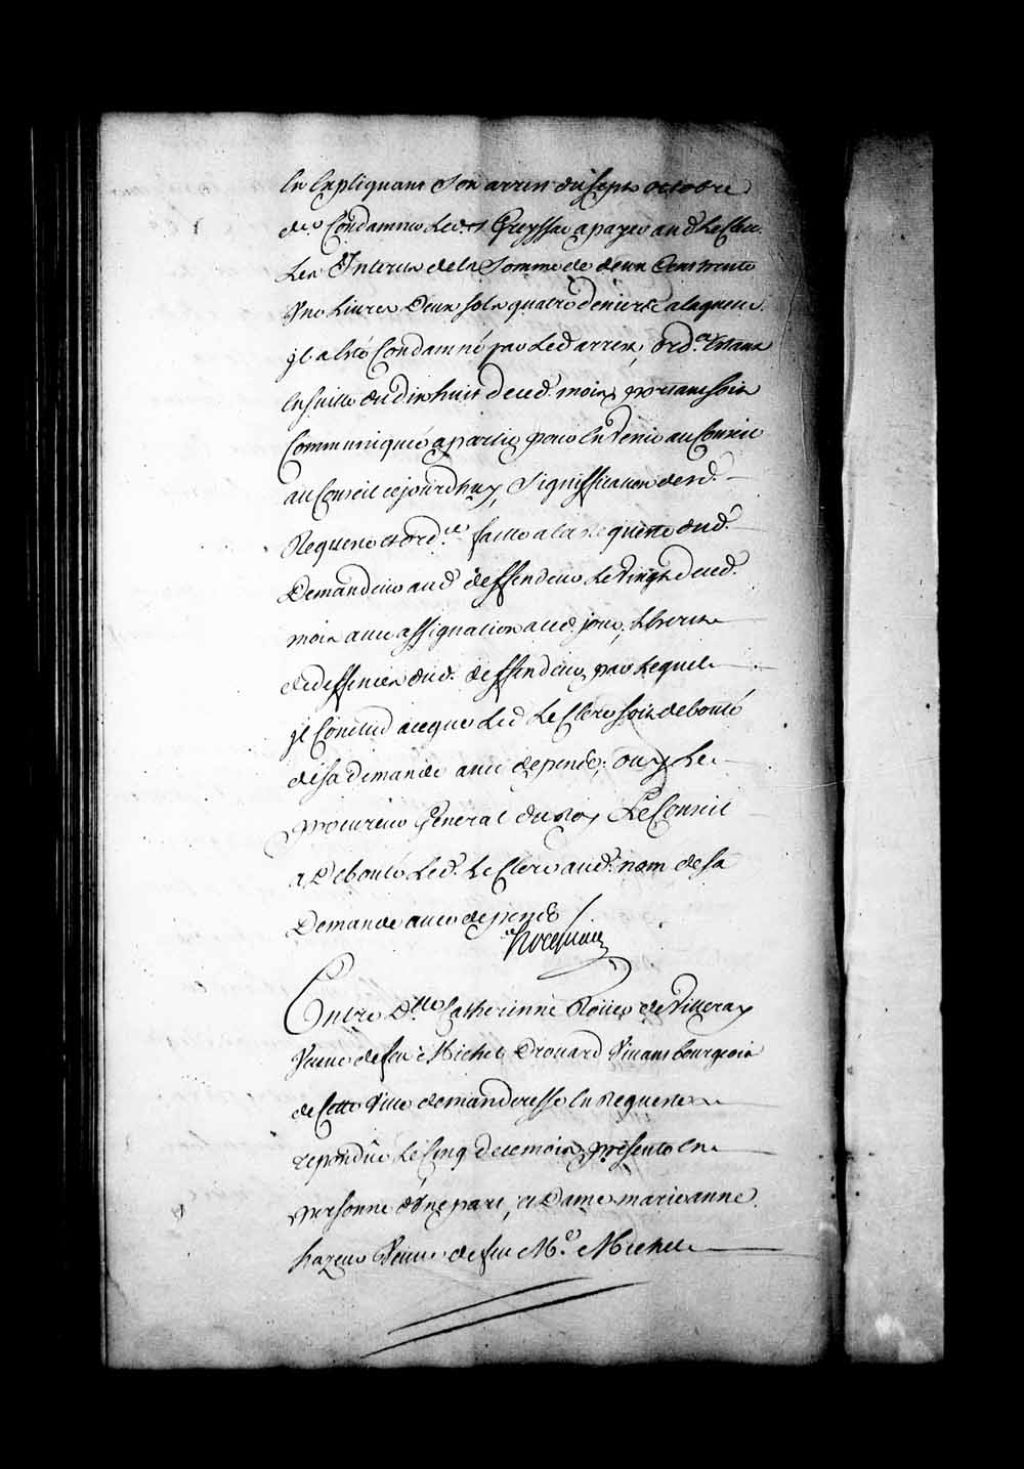 En Expliquant Son arrest du sept octobre
de Condamner Led. s. Greyssac a payer aud Le Clerc
Les Interets de la Somme de deux Cens trente
Une Livres Deux sols quatre deniers a laquelle
jl a Esté Condamné par Led arrest, ord.ce Estant
Ensuitte du dixhuit de ced. moir, portant soit
Communiqué a partie pour En Venir au Conseil
au Conseil cejourdhuy, Signiffication desd.
Requeste et ord.ce faitte a la requeste dud.
Demandeur aud deffendeur Le Vingt de ced.
mois avec assignation a ced. jour, Ecrit
de deffenses dud. deffendeur, par Lequel
jl Conclud aceque Led Le Clerc soit debouté
de sa demande avec depends; ouy Le
procureur General du Roy Le Conseil
a Debouté Led. Le Clerc aud. nom de sa
Demande avec depends /.
Hocquart
Entre D.lle Catherinne Roüer de Villeray
Veuve de feu Michel Drouard Vivant bourgeois
de Cette Ville demanderesse En Requeste
repondüe Le Cinq de ce mois, presente En
personne d'Une part, et Dame marieanne
hazeur Veuve de feu M.e Michel